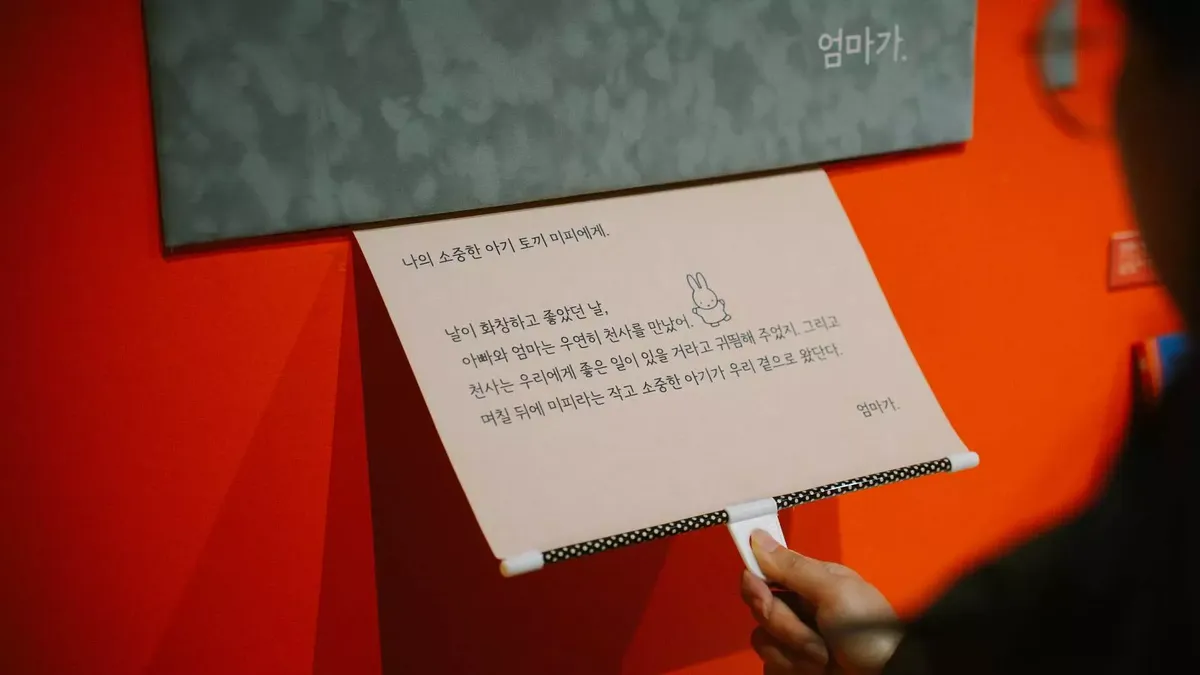 엄마가.
나의 소중한 아기 토끼 미피에게.
날이 화창하고 좋았던 날,
아빠와 엄마는 우연히 천사를 만났어.
천사는 우리에게 좋은 일이 있을 거라고 귀띔해 주었지. 그리고
며칠 뒤에 미피라는 작고 소중한 아기가 우리 곁으로 왔단다.
엄마가.